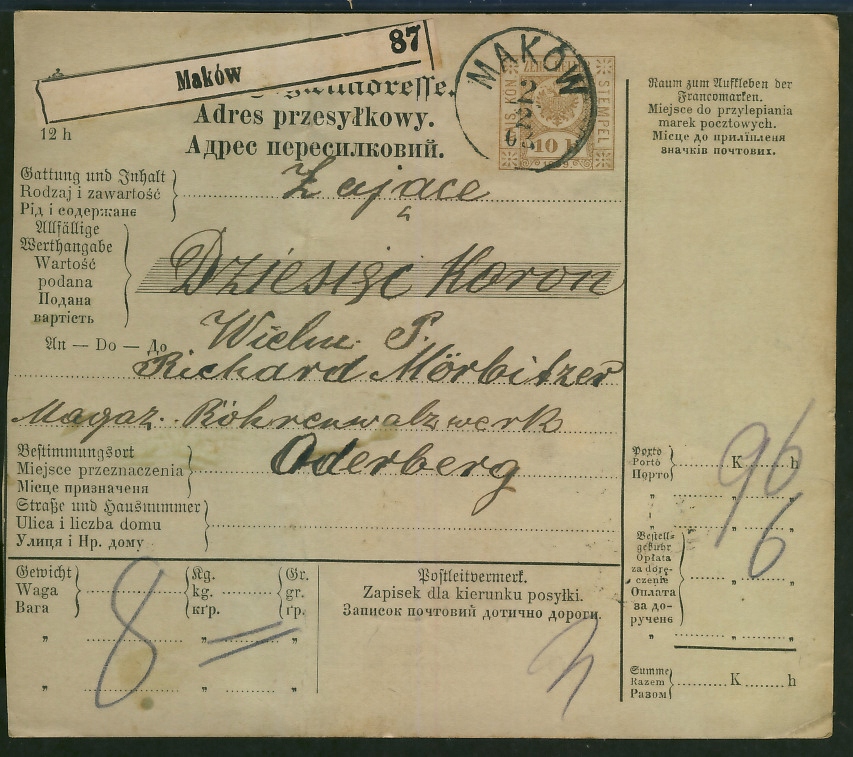 Maków 87
12 h
Adres przesyłkowy.
Адрес пересилковий.
MAKÓW
STEMPEL
10 H
Raum zum Aufkleben der
Francomarken.
Miejsce do przylepiania
marek pocztowych.
Місце до приліпленя
значків почтових.
Gattung und Inhalt
Rodzaj i zawartość
Рід і содержанє
Zająca
Allfällige
Werthangabe
Wartość
podana
Подана
вартість
Dziesięć Koron
An — Do — До
Wielm. P.
Richard Mörbitzer
Magaz. Röhrenwalzwerk
Bestimmungsort
Miejsce przeznaczenia
Місце призначеня
Oderberg
Straße und Hausnummer
Ulica i liczba domu
Улиця і Нр. дому
Porto
Porto
Порто
K h
96
Bestell-
gebühr
Opłata
za dorę-
czenie
Оплата
за до-
рученє
6
Gewicht
Waga
Вага
Kg.
kg.
кґр.
Gr.
gr.
ґр.
8
Postleitvermerk.
Zapisek dla kierunku posyłki.
Записок почтовий дотично дороги.
Summe
Razem
Разом
K h